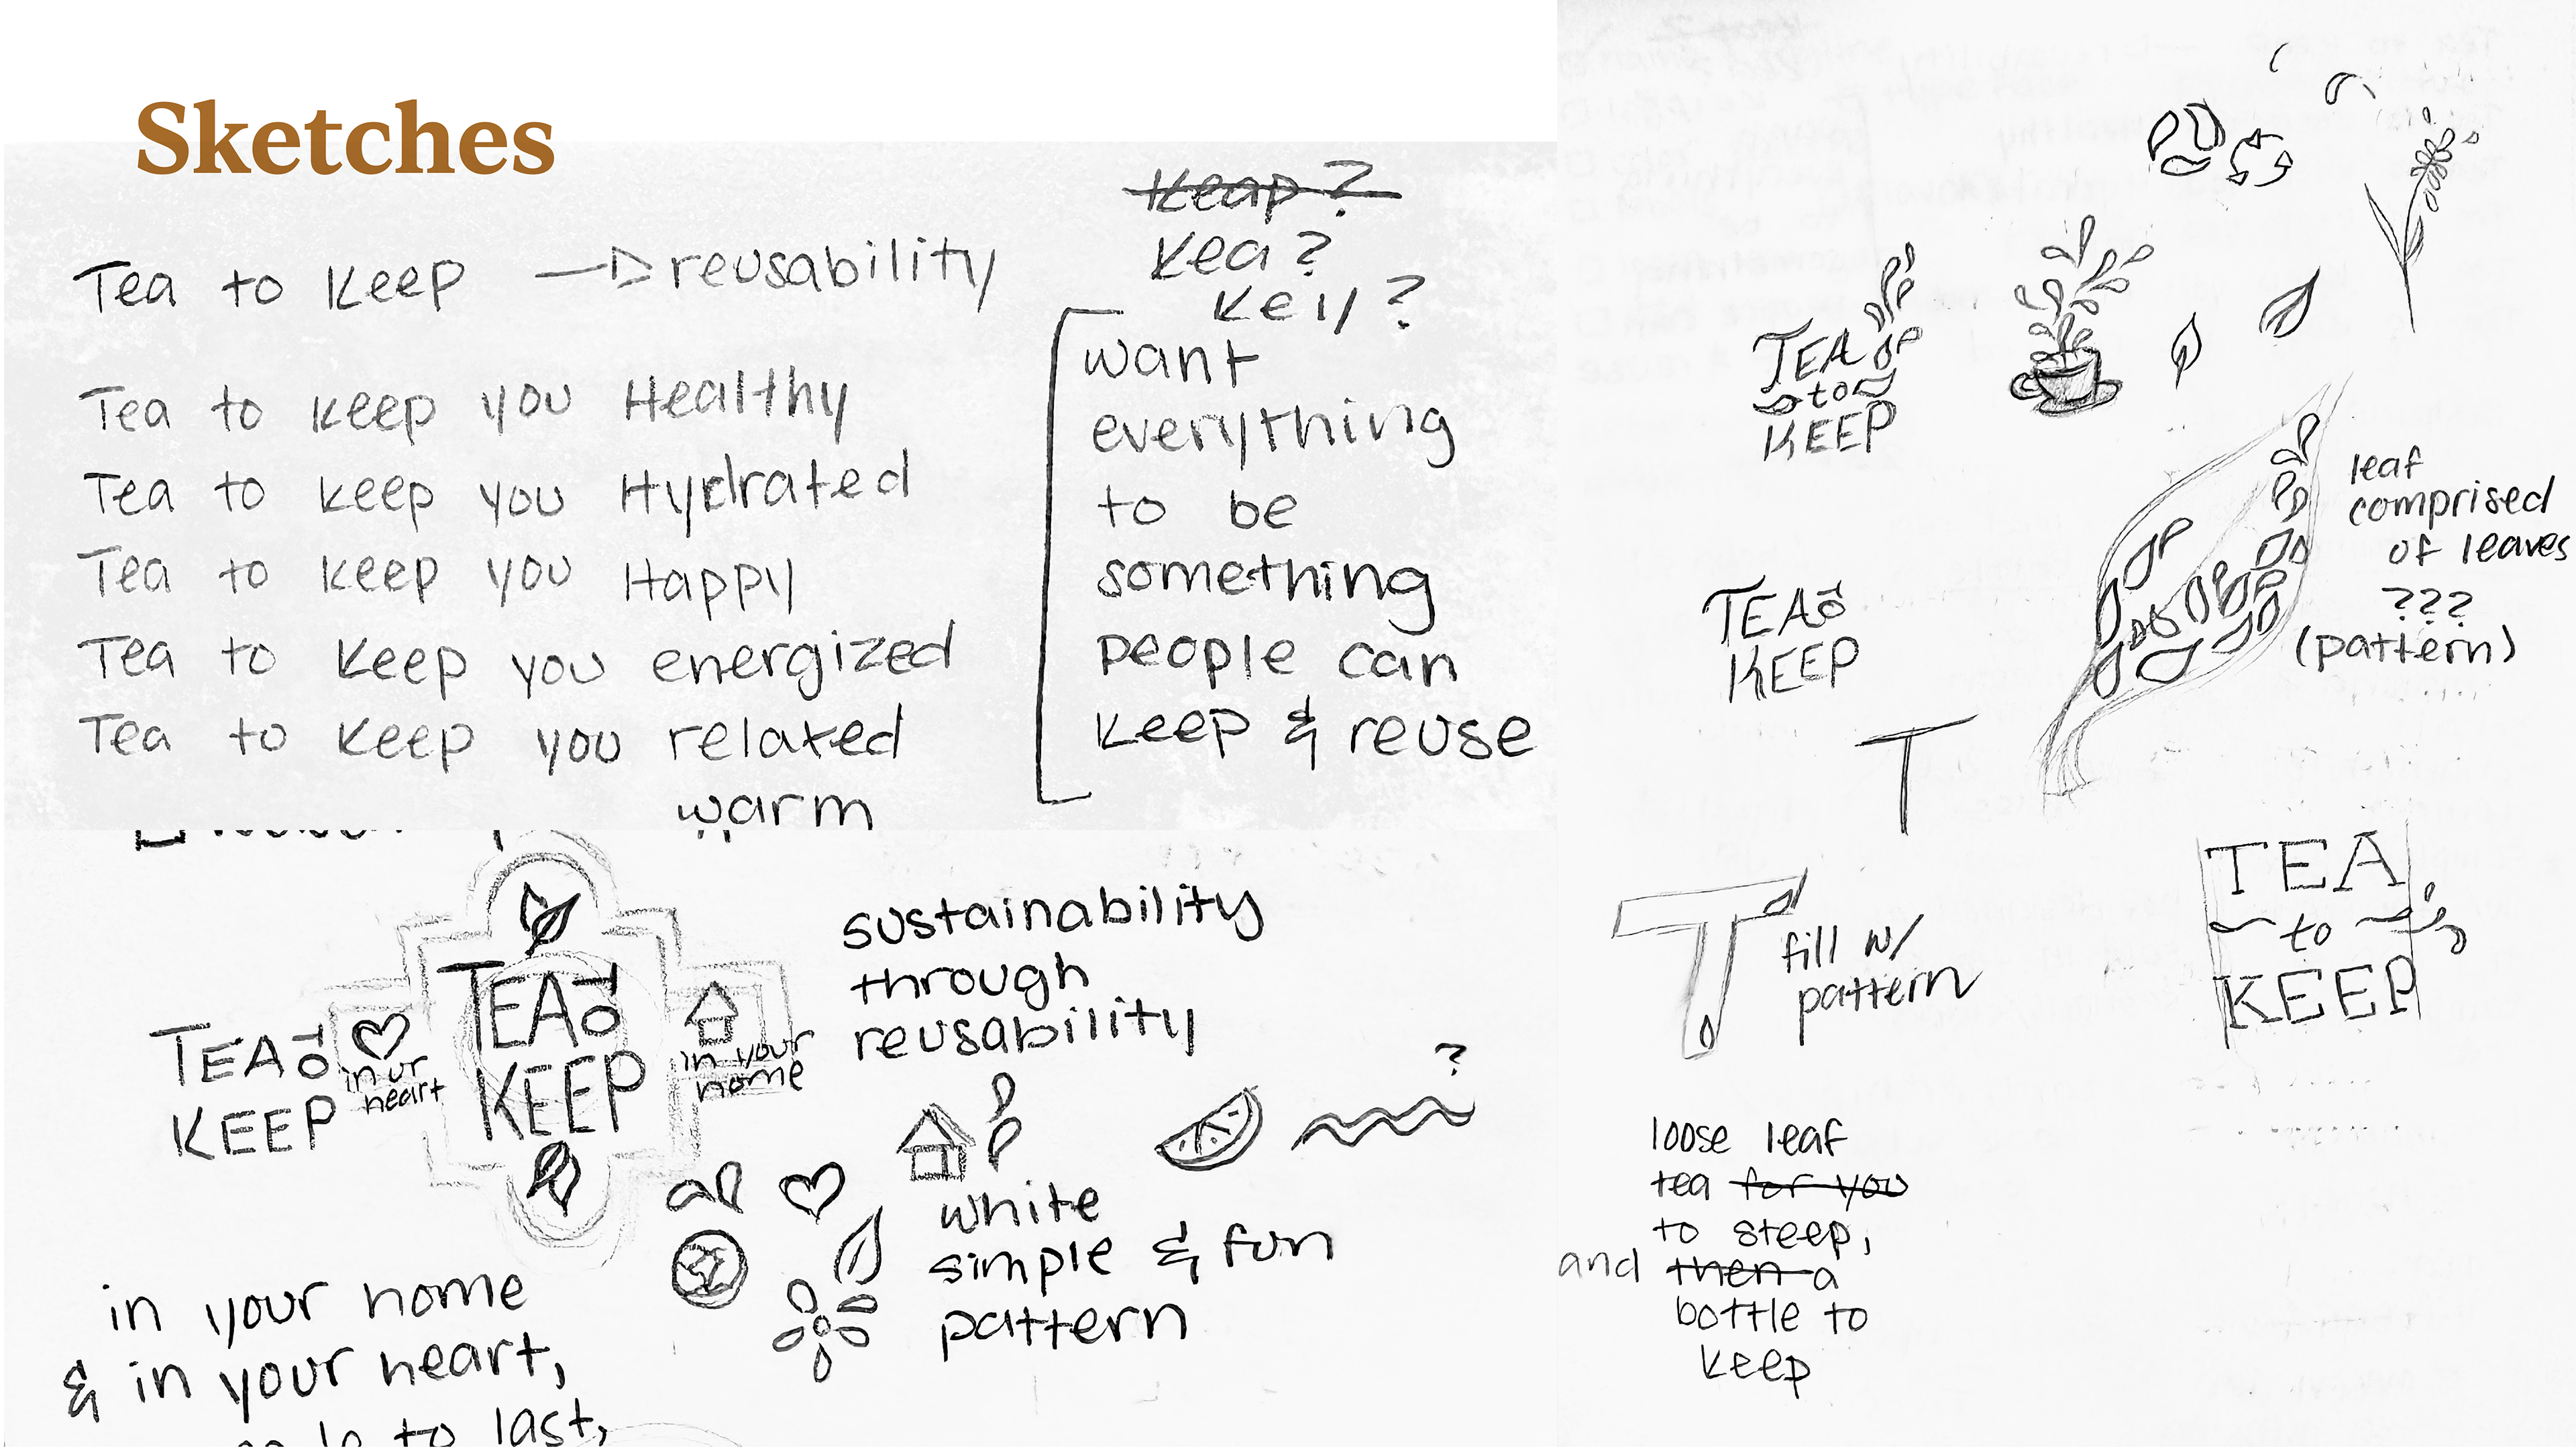 Sketches
Tea to Keep → reusability
Tea to keep you Healthy
Tea to keep you Hydrated
Tea to keep you Happy
Tea to keep you energized
Tea to keep you relaxed
warm
Keap?
Kea?
Key?
want
everything
to be
something
people can
keep & reuse
TEA to
KEEP
in ur
heart
TEA to
KEEP
in your
home
sustainability
through
reusability
?
white
simple & fun
pattern
in your home
& in your heart,
to last,
TEA
to
KEEP
leaf
comprised
of leaves
???
(pattern)
TEA to
KEEP
T
T
fill w/
pattern
TEA
to
KEEP
loose leaf
tea for you
to steep,
and then a
bottle to
keep